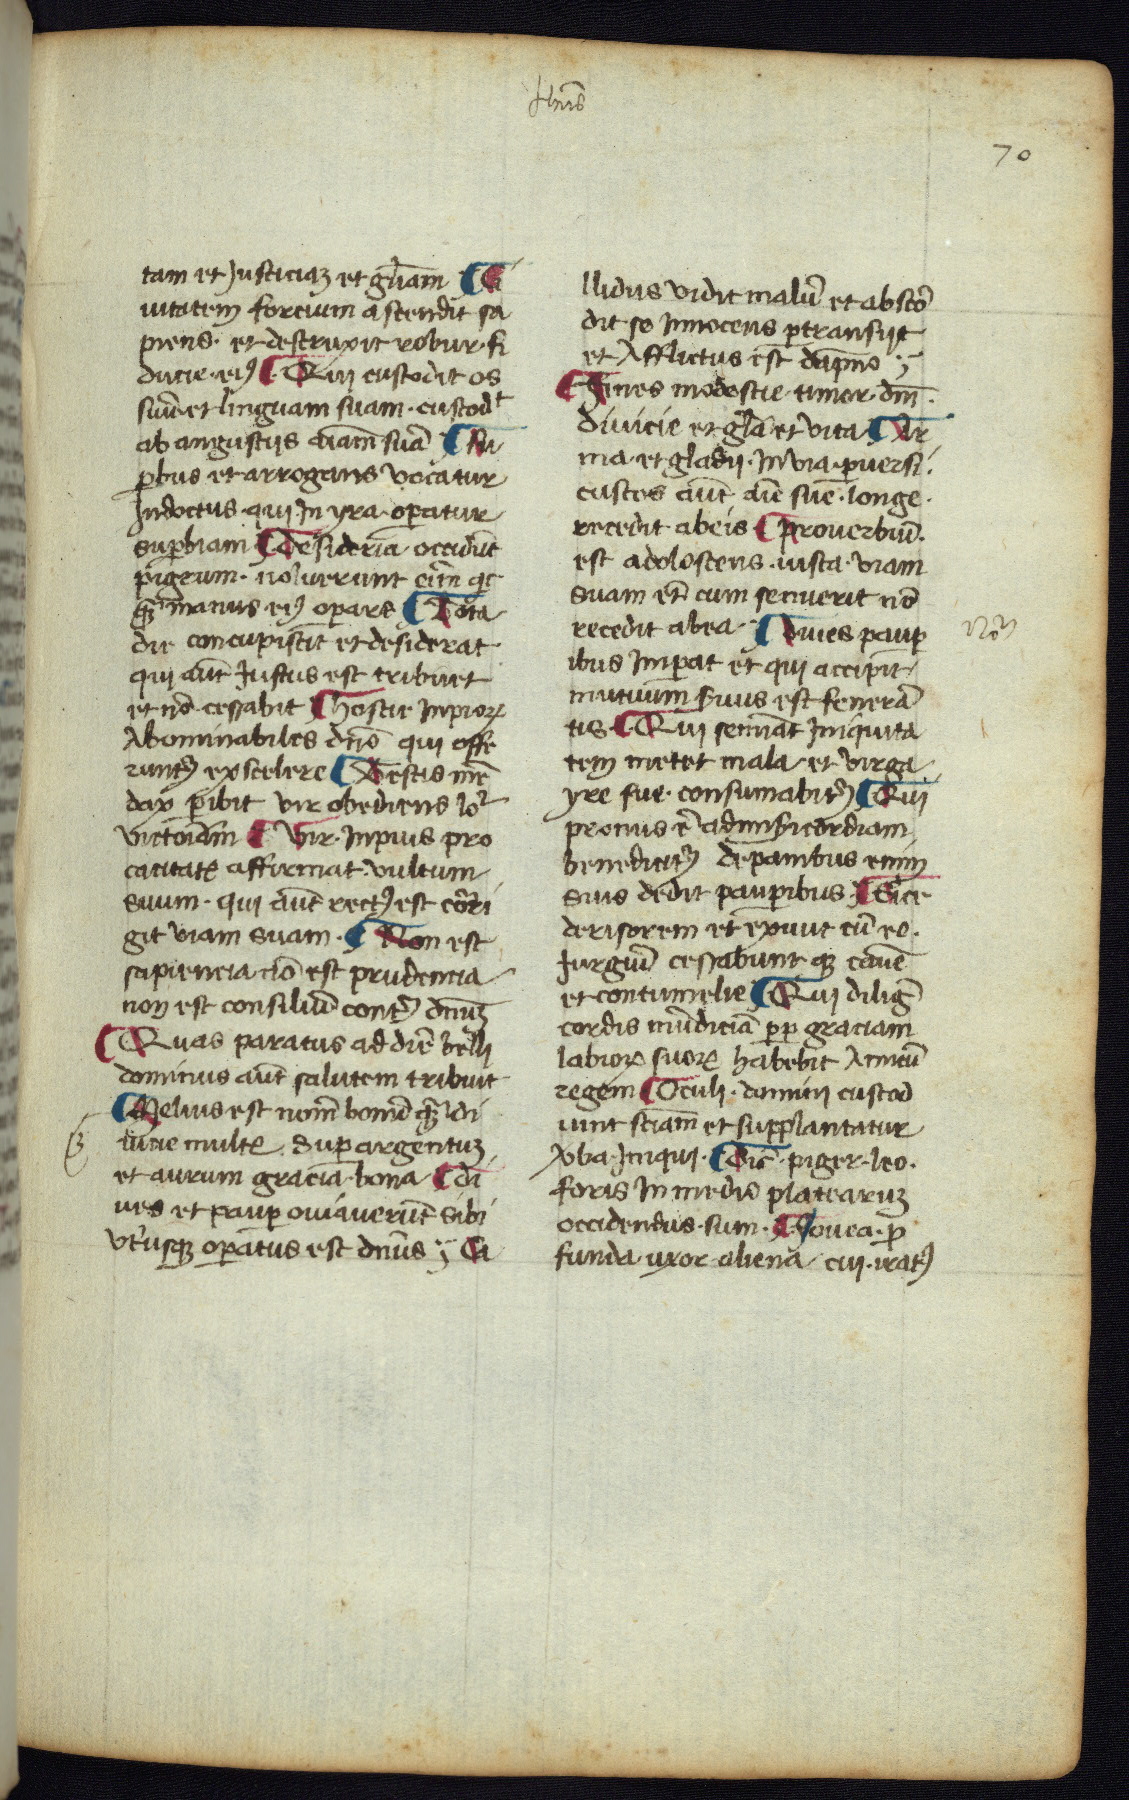 Hnis
70
tam et Justiciaꝫ et gl̄iam ¶ Ci
uitatem forcium ascendit sa
piens · et destruxit robur · fi
ducie · eiꝰ ¶ Qui custodit os
suū et linguam suam · custodᵗ
ab angustijs aīam suā ¶ Su
ꝑbus et arrogans vocatur
Indoctus · qui In yra · operatur
suꝑbiam ¶ Desideria occidūt
pigrum · noluerunt eīm qͥc
qᷓ manus eiꝰ operare ¶ Tota
die concupiscit et desiderat
qui aūt Justus est tribuet
et nō cessabit ¶ hostie Inpioꝝ
Abominabiles dn̄o qui offe
runtᷣ ex scelere ¶ Testis mē
dax ꝑibit vir obediens loͬ
victoriam ¶ Vir · Inpius pro
cacitatꝭ affirmat vultum
suum · qui aūt rectꝰ est cori
git viam suam · ¶ Non est
sapiencia nō est prudencia
non est consiliū cont̄ᷓ dn̄uꝫ
¶ Equus paratus ad diē belli
dominus aūt salutem tribuit
¶ Melius est nom̄ bonū qᷓ di
uicie multꝭ Suꝑ argentuꝫ
et aurum gracia · bona ¶ di
ues et pauꝑ ouiaueruͭt sibi
vtͥusqꝫ oꝑatus est dn̄us ¶ Ca
llidus vidit malū et abscō
dit se Innocens ꝑtransijt
et Afflictus est dāpno
¶ Fines modestie timor · dn̄i ·
diuicie et gl̄a et vita ¶ Ar
ma · et gladij · In via · ꝑuersi ·
custos aūt aīe sue · longe ·
recedit ab eis ¶ prouerbiū ·
est adolescens · iuxta · viam
suam et̄ cum senuerit nō
recedit ab ea · ¶ Diues pauꝑ
ibus Imꝑat et qui accipit
mutuum s̄uus est fenerā
tis · ¶ Qui semīat Iniquita
tem metet mala et virga
yre sue · consumabitᷣ ¶ Qui
pronus ē ad mīs̄icordiam
benedicitᷣ de panibus enim
suis dedit pauꝑibus ¶ Eice
derisorem et exiuit cū eo ·
Iurgiū cessabunt qꝫ cause
et contumelie ¶ Qui diligͭ
cordis mūdiciā ꝓpͭ graciam
labioꝝ suoꝝ habebit Amicū
regem ¶ Oculi · domini custod
iunt sciam̄ et supplantatur
v̓ba · Iniqui · ¶ Dic̄ · piger · leo ·
foris In medio platearuꝫ
occidendus · sum · ¶ Fouea · ꝓ
funda uxor aliena cui · iratꝰ